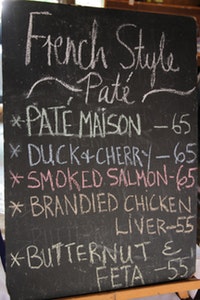 French Style
Paté
* PATÉ MAISON - 65
* DUCK & CHERRY - 65
* SMOKED SALMON - 65
* BRANDIED CHICKEN
LIVER - 55
* BUTTERNUT &
FETA - 55